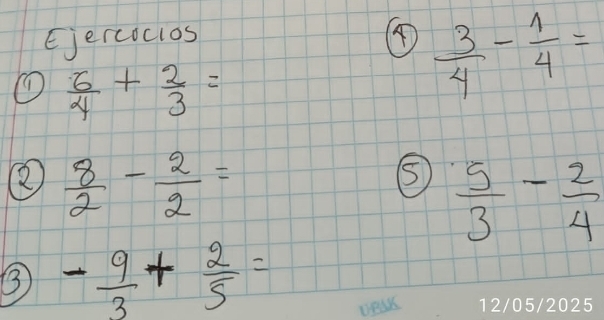 Ejercicios
① 6/4 + 2/3 =
② 8/2 - 2/2 =
③ - 9/3 + 2/5 =
④ 3/4 - 1/4 =
⑤ 5/3 - 2/4
12/05/2025